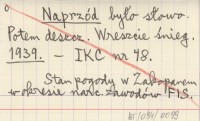 Naprzód było słowo.
Potem deszcz. Wreszcie śnieg.
1939. – IKC nr 48.
Stan pogody w Zakopanem
w okresie narc. zawodów FIS.